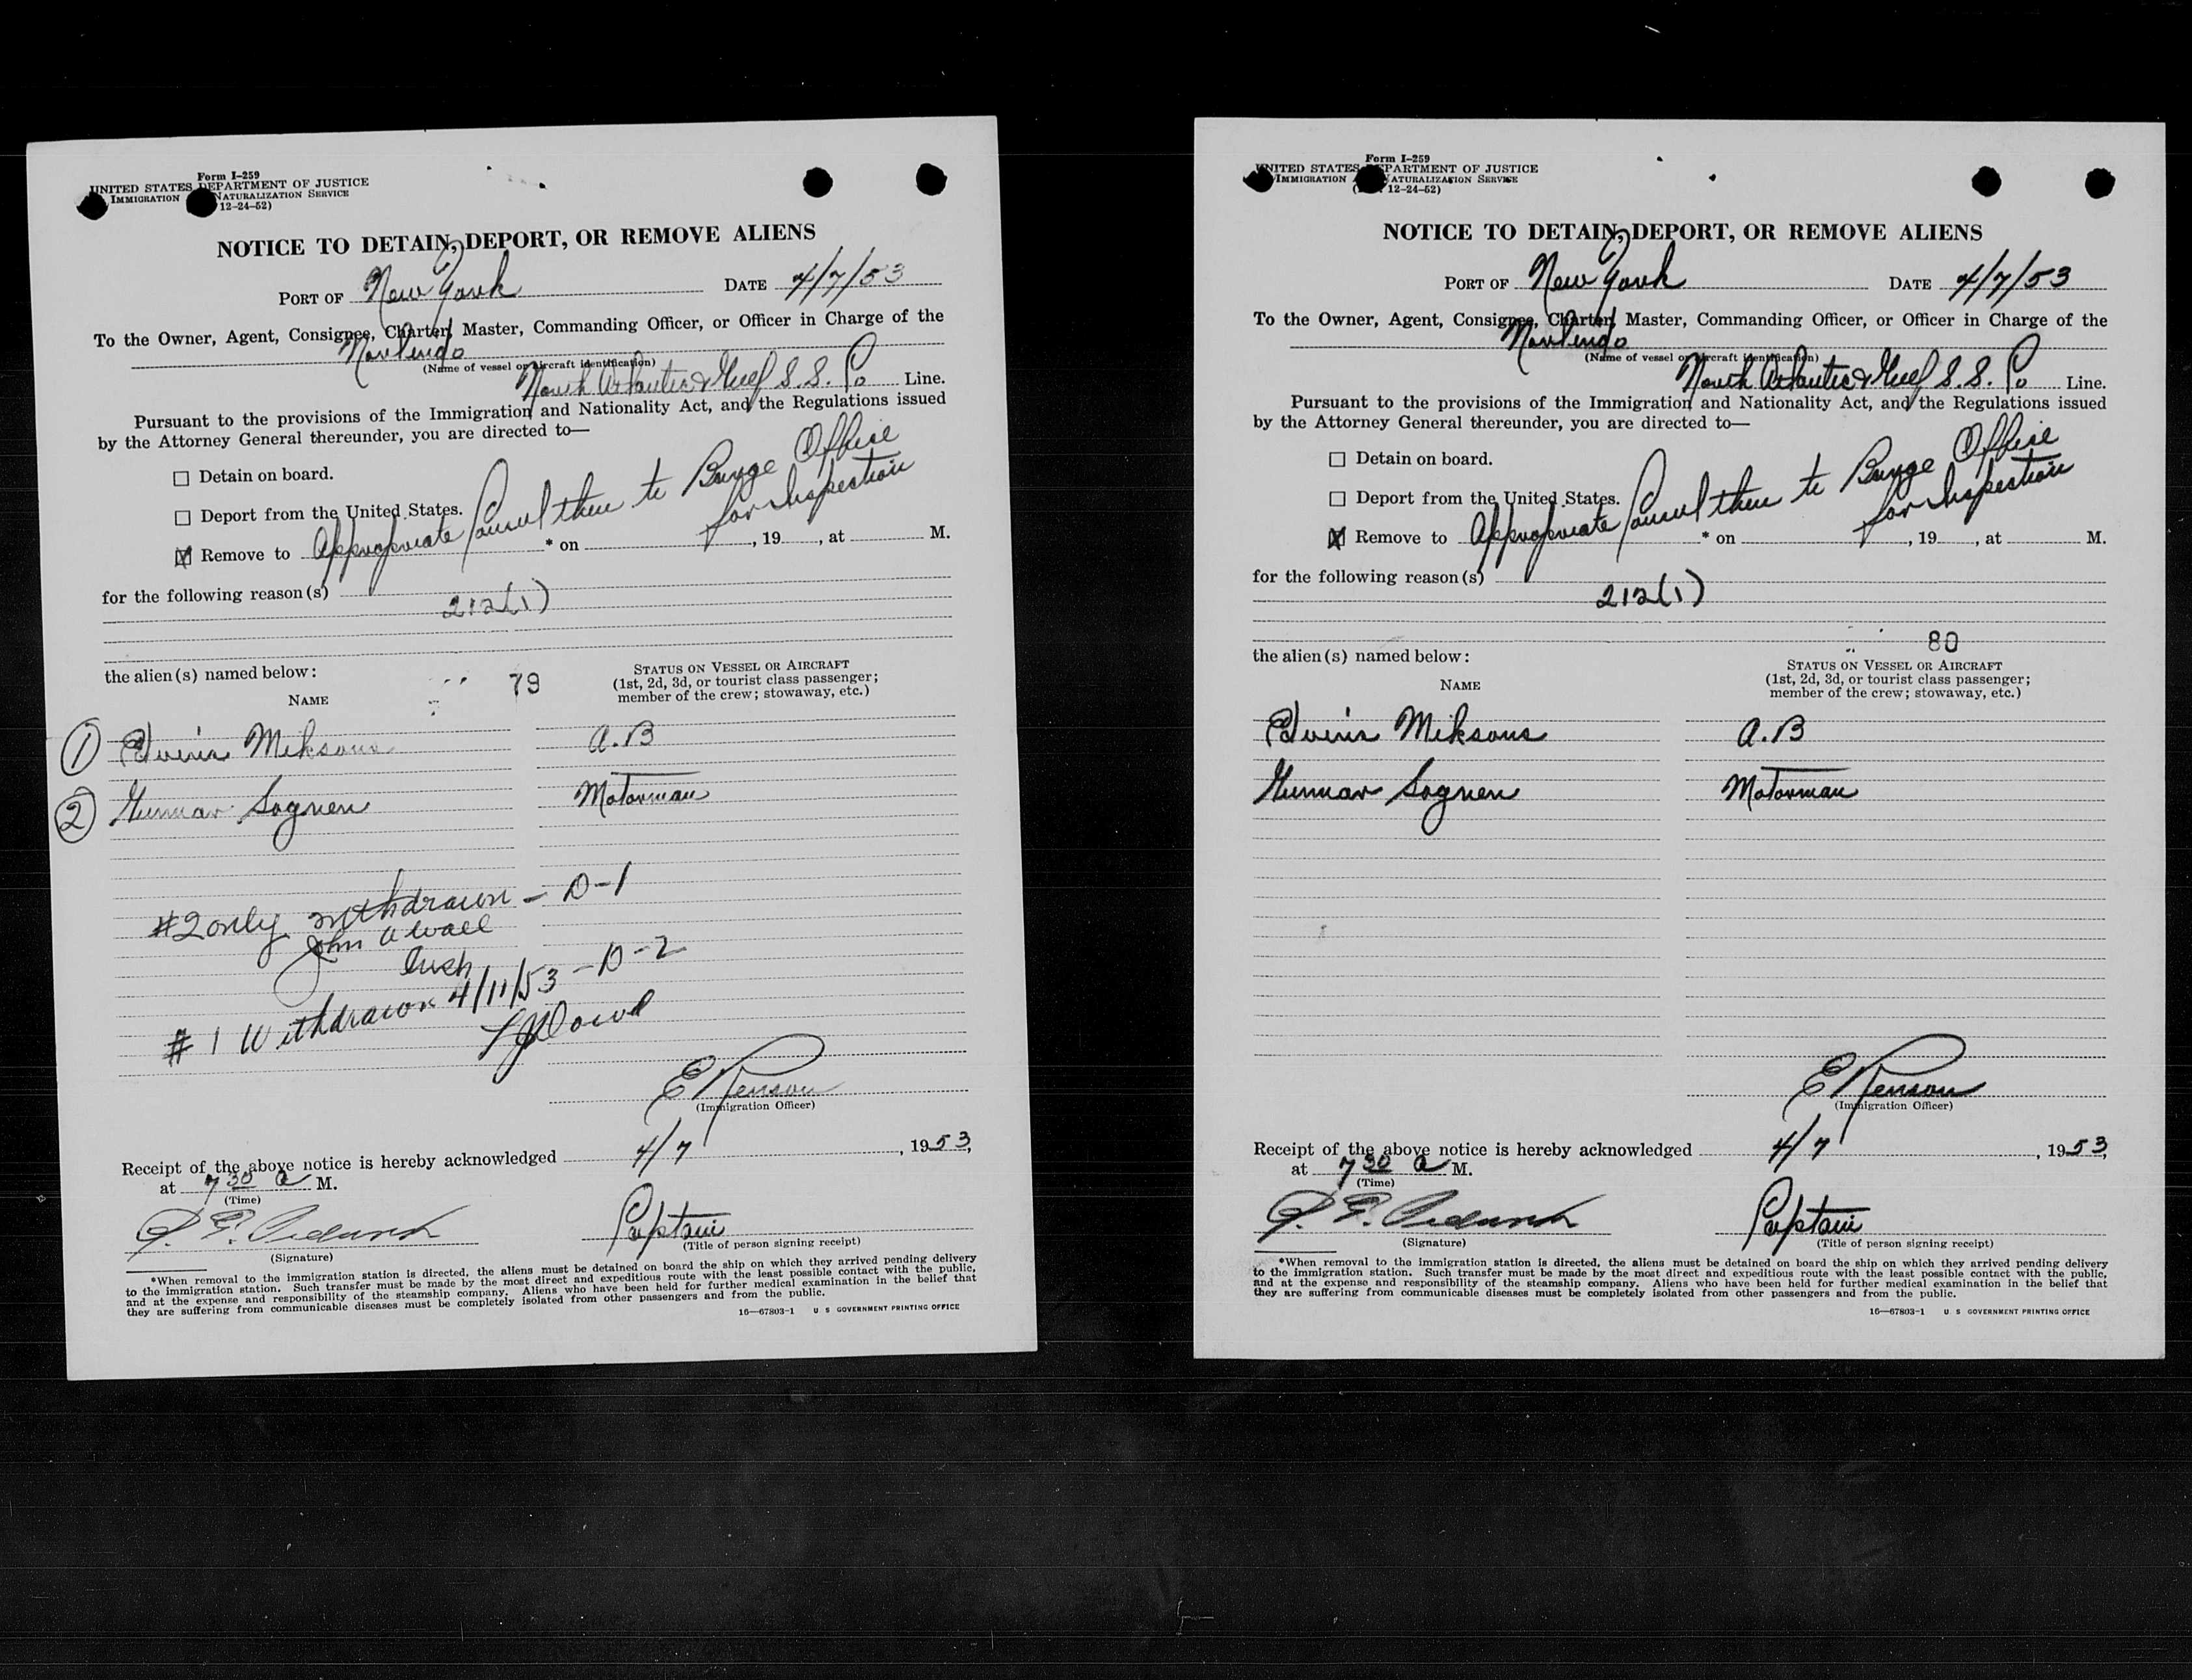 Form I-259
UNITED STATES DEPARTMENT OF JUSTICE
IMMIGRATION NATURALIZATION SERVICE
12-24-52)
NOTICE TO DETAIN, DEPORT, OR REMOVE ALIENS
PORT OF New York DATE 4/7/53
To the Owner, Agent, Consignee, Charter, Master, Commanding Officer, or Officer in Charge of the
Norlindo
(Name of vessel or aircraft identification)
North Atlantic & Gulf S.S. Co Line.
Pursuant to the provisions of the Immigration and Nationality Act, and the Regulations issued
by the Attorney General thereunder, you are directed to—
☐ Detain on board.
☐ Deport from the United States.
☒ Remove to Appropriate Consul then to Barge Office
for Inspection
* on , 19 , at M.
for the following reason(s)
212(1)
the alien(s) named below:
79
STATUS ON VESSEL OR AIRCRAFT
(1st, 2d, 3d, or tourist class passenger;
member of the crew; stowaway, etc.)
NAME
① Edvins Miksons A.B
② Gunnar Sognen Motorman
#2 only withdrawn - D-1
John A Wall
Insp
#1 Withdrawn 4/11/53 - D-2
E Renson
(Immigration Officer)
Receipt of the above notice is hereby acknowledged 4/7, 1953,
at 7 30 a M.
(Time)
Captain
(Signature)
(Title of person signing receipt)
*When removal to the immigration station is directed, the aliens must be detained on board the ship on which they arrived pending delivery
to the immigration station. Such transfer must be made by the most direct and expeditious route with the least possible contact with the public,
and at the expense and responsibility of the steamship company. Aliens who have been held for further medical examination in the belief that
they are suffering from communicable diseases must be completely isolated from other passengers and from the public.
16—67803-1 U S GOVERNMENT PRINTING OFFICE
Form I-259
UNITED STATES DEPARTMENT OF JUSTICE
IMMIGRATION NATURALIZATION SERVICE
12-24-52)
NOTICE TO DETAIN, DEPORT, OR REMOVE ALIENS
PORT OF New York DATE 4/7/53
To the Owner, Agent, Consignee, Charter, Master, Commanding Officer, or Officer in Charge of the
Norlindo
(Name of vessel or aircraft identification)
North Atlantic & Gulf S.S. Co Line.
Pursuant to the provisions of the Immigration and Nationality Act, and the Regulations issued
by the Attorney General thereunder, you are directed to—
☐ Detain on board.
☐ Deport from the United States.
☒ Remove to Appropriate Consul then to Barge Office
for Inspection
* on , 19 , at M.
for the following reason(s)
212(1)
80
the alien(s) named below:
STATUS ON VESSEL OR AIRCRAFT
(1st, 2d, 3d, or tourist class passenger;
member of the crew; stowaway, etc.)
NAME
Edvins Miksons A.B
Gunnar Sognen Motorman
E Renson
(Immigration Officer)
Receipt of the above notice is hereby acknowledged 4/7, 1953,
at 7 30 a M.
(Time)
Captain
(Signature)
(Title of person signing receipt)
*When removal to the immigration station is directed, the aliens must be detained on board the ship on which they arrived pending delivery
to the immigration station. Such transfer must be made by the most direct and expeditious route with the least possible contact with the public,
and at the expense and responsibility of the steamship company. Aliens who have been held for further medical examination in the belief that
they are suffering from communicable diseases must be completely isolated from other passengers and from the public.
16—67803-1 U S GOVERNMENT PRINTING OFFICE